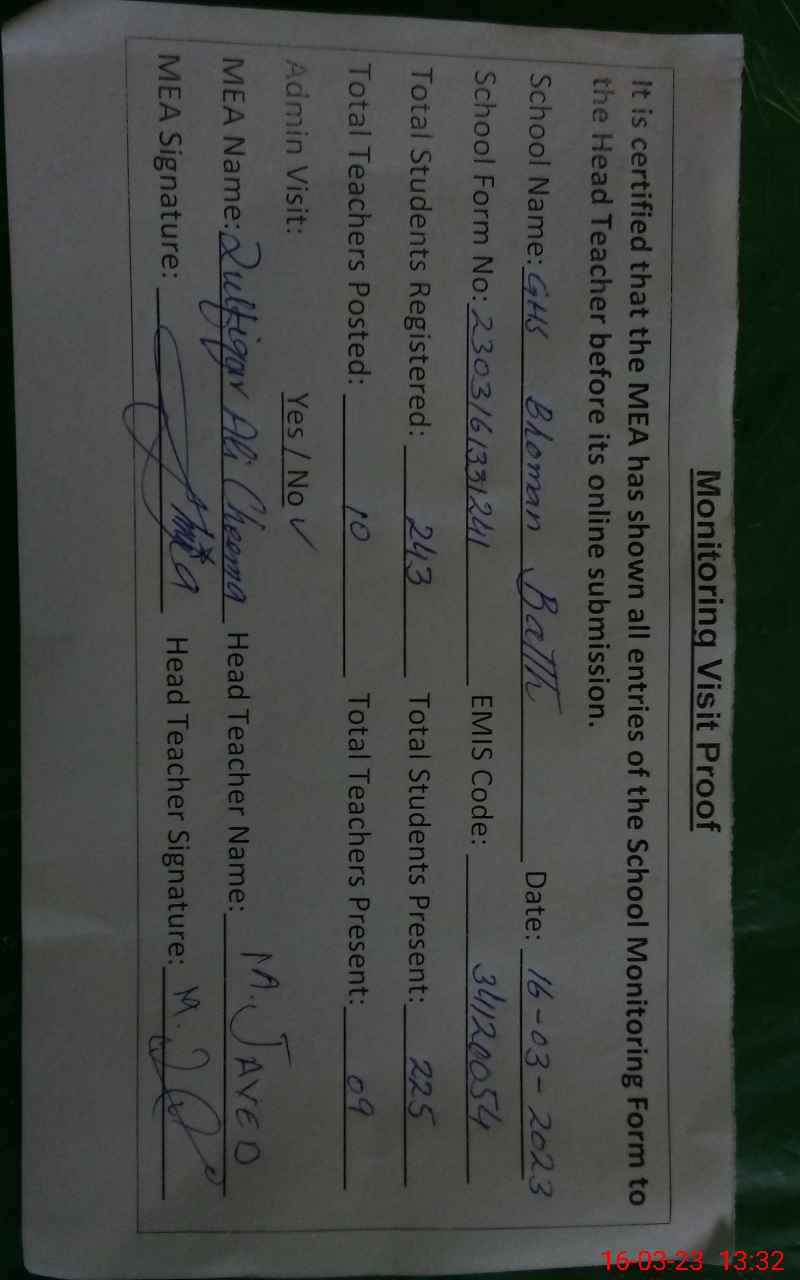 Monitoring Visit Proof
It is certified that the MEA has shown all entries of the School Monitoring Form to
the Head Teacher before its online submission.
School Name: GHS Bhoman Batth Date: 16-03-2023
School Form No: 230316131241 EMIS Code: 34120054
Total Students Registered: 243 Total Students Present: 225
Total Teachers Posted: 10 Total Teachers Present: 09
Admin Visit: Yes / No ✓
MEA Name: Zulfiqar Ali Cheema Head Teacher Name: M. JAVED
MEA Signature: Head Teacher Signature: M.
16-03-23 13:32